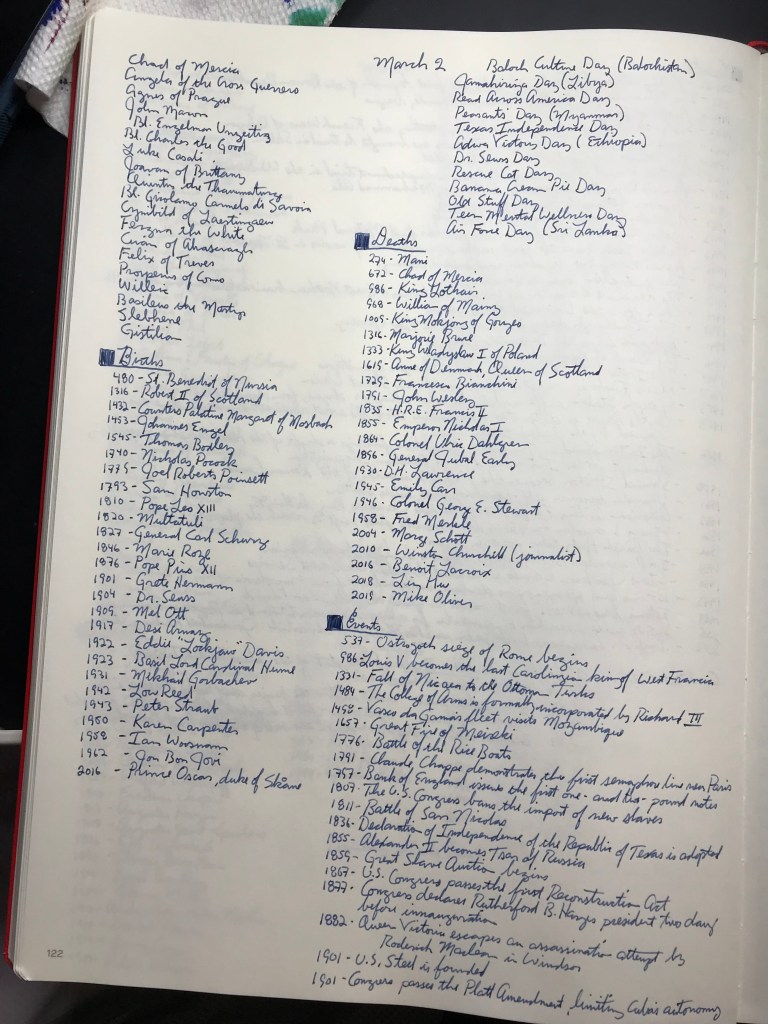 March 2
Chad of Mercia
Angela of the Cross Guerrero
Agnes of Prague
John Maron
Bl. Engelmar Unzeitig
Bl. Charles the Good
Luke Casali
Joavan of Brittany
Quentin the Thaumaturg
Bl. Girolamo Carmelo di Savoia
Cynibild of Laestingaeu
Fergna the White
Cuan of Ahascragh
Felix of Treves
Prosperus of Como
Willeic
Basileus the Martyr
Slebhene
Gistilian
Baloch Culture Day (Balochistan)
Jamahiriya Day (Libya)
Read Across America Day
Peasants' Day (Myanmar)
Texas Independence Day
Adwa Victory Day (Ethiopia)
Dr. Seuss Day
Rescue Cat Day
Banana Cream Pie Day
Old Stuff Day
Teen Mental Wellness Day
Air Force Day (Sri Lanka)
Births
480 - St. Benedict of Nursia
1316 - Robert II of Scotland
1432 - Countess Palatine Margaret of Mosbach
1453 - Johannes Engel
1545 - Thomas Bodley
1740 - Nicholas Pocock
1779 - Joel Roberts Poinsett
1793 - Sam Houston
1810 - Pope Leo XIII
1820 - Multatuli
1827 - General Carl Schurz
1846 - Marie Roze
1876 - Pope Pius XII
1901 - Grete Hermann
1904 - Dr. Seuss
1909 - Mel Ott
1917 - Desi Arnaz
1922 - Eddie "Lockjaw" Davis
1923 - Basil Lord Cardinal Hume
1931 - Mikhail Gorbachev
1942 - Lou Reed
1943 - Peter Straub
1950 - Karen Carpenter
1958 - Ian Woosnam
1962 - Jon Bon Jovi
2016 - Prince Oscar, duke of Skåne
Deaths
274 - Mani
672 - Chad of Mercia
986 - King Lothair
968 - William of Mainz
1009 - King Mokjong of Goryeo
1316 - Marjorie Bruce
1333 - King Wladyslaw I of Poland
1619 - Anne of Denmark, Queen of Scotland
1729 - Francesco Bianchini
1791 - John Wesley
1835 - H.R.E. Francis II
1855 - Emperor Nicholas I
1864 - Colonel Ulric Dahlgren
1896 - General Jubal Early
1930 - D.H. Lawrence
1945 - Emily Carr
1946 - Colonel George E. Stewart
1958 - Fred Merkle
2004 - Marge Schott
2010 - Winston Churchill (journalist)
2016 - Benoît Lacroix
2018 - Lin Hu
2019 - Mike Oliver
Events
537 - Ostrogoth siege of Rome begins
986 Louis V becomes the last Carolingian king of West Francia
1331 - Fall of Nicaea to the Ottoman Turks
1484 - The College of Arms is formally incorporated by Richard III
1498 - Vasco da Gama's fleet visits Mozambique
1657 - Great Fire of Meireki
1776 - Battle of the Rice Boats
1791 - Claude Chappe demonstrates the first semaphore line near Paris
1797 - Bank of England issues the first one- and two-pound notes
1807 - The U.S. Congress bans the import of new slaves
1811 - Battle of San Nicolas
1836 - Declaration of Independence of the Republic of Texas is adopted
1855 - Alexander II becomes Tsar of Russia
1859 - Great Slave Auction begins
1867 - U.S. Congress passes the first Reconstruction Act
1877 - Congress declares Rutherford B. Hayes president two days
before innauguration
1882 - Queen Victoria escapes an assassination attempt by
Roderick Maclean in Windsor
1901 - U.S. Steel is founded
1901 - Congress passes the Platt Amendment, limiting Cuba's autonomy
122